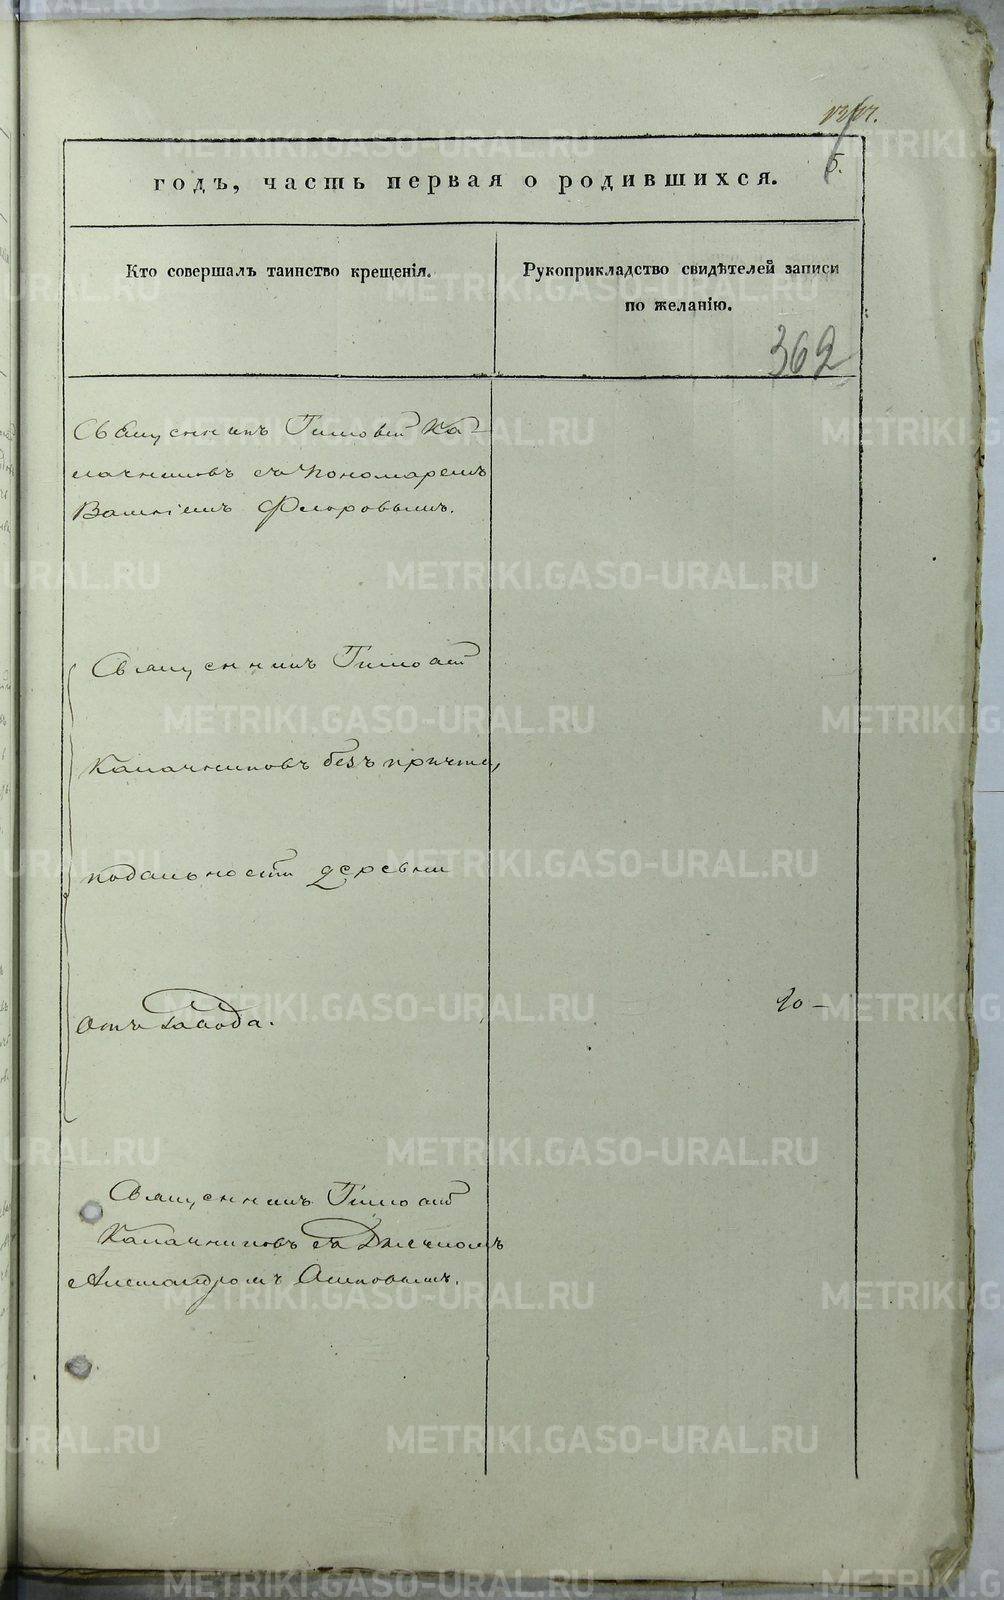 5.
годъ, часть первая о родившихся.
Кто совершалъ таинство крещенія.
Рукоприкладство свидѣтелей записи
по желанію.
362
Священникъ Тимофей Ка-
лачниковъ съ Пономаремъ
Флоровымъ.
Священникъ Тимофей
Калачниковъ безъ причта,
подальности деревни
отъ Завода.
20 –
Священникъ Тимофей
Калачниковъ съ Дьячкомъ
Александромъ Осиповымъ.
METRIKI.GASO-URAL.RU